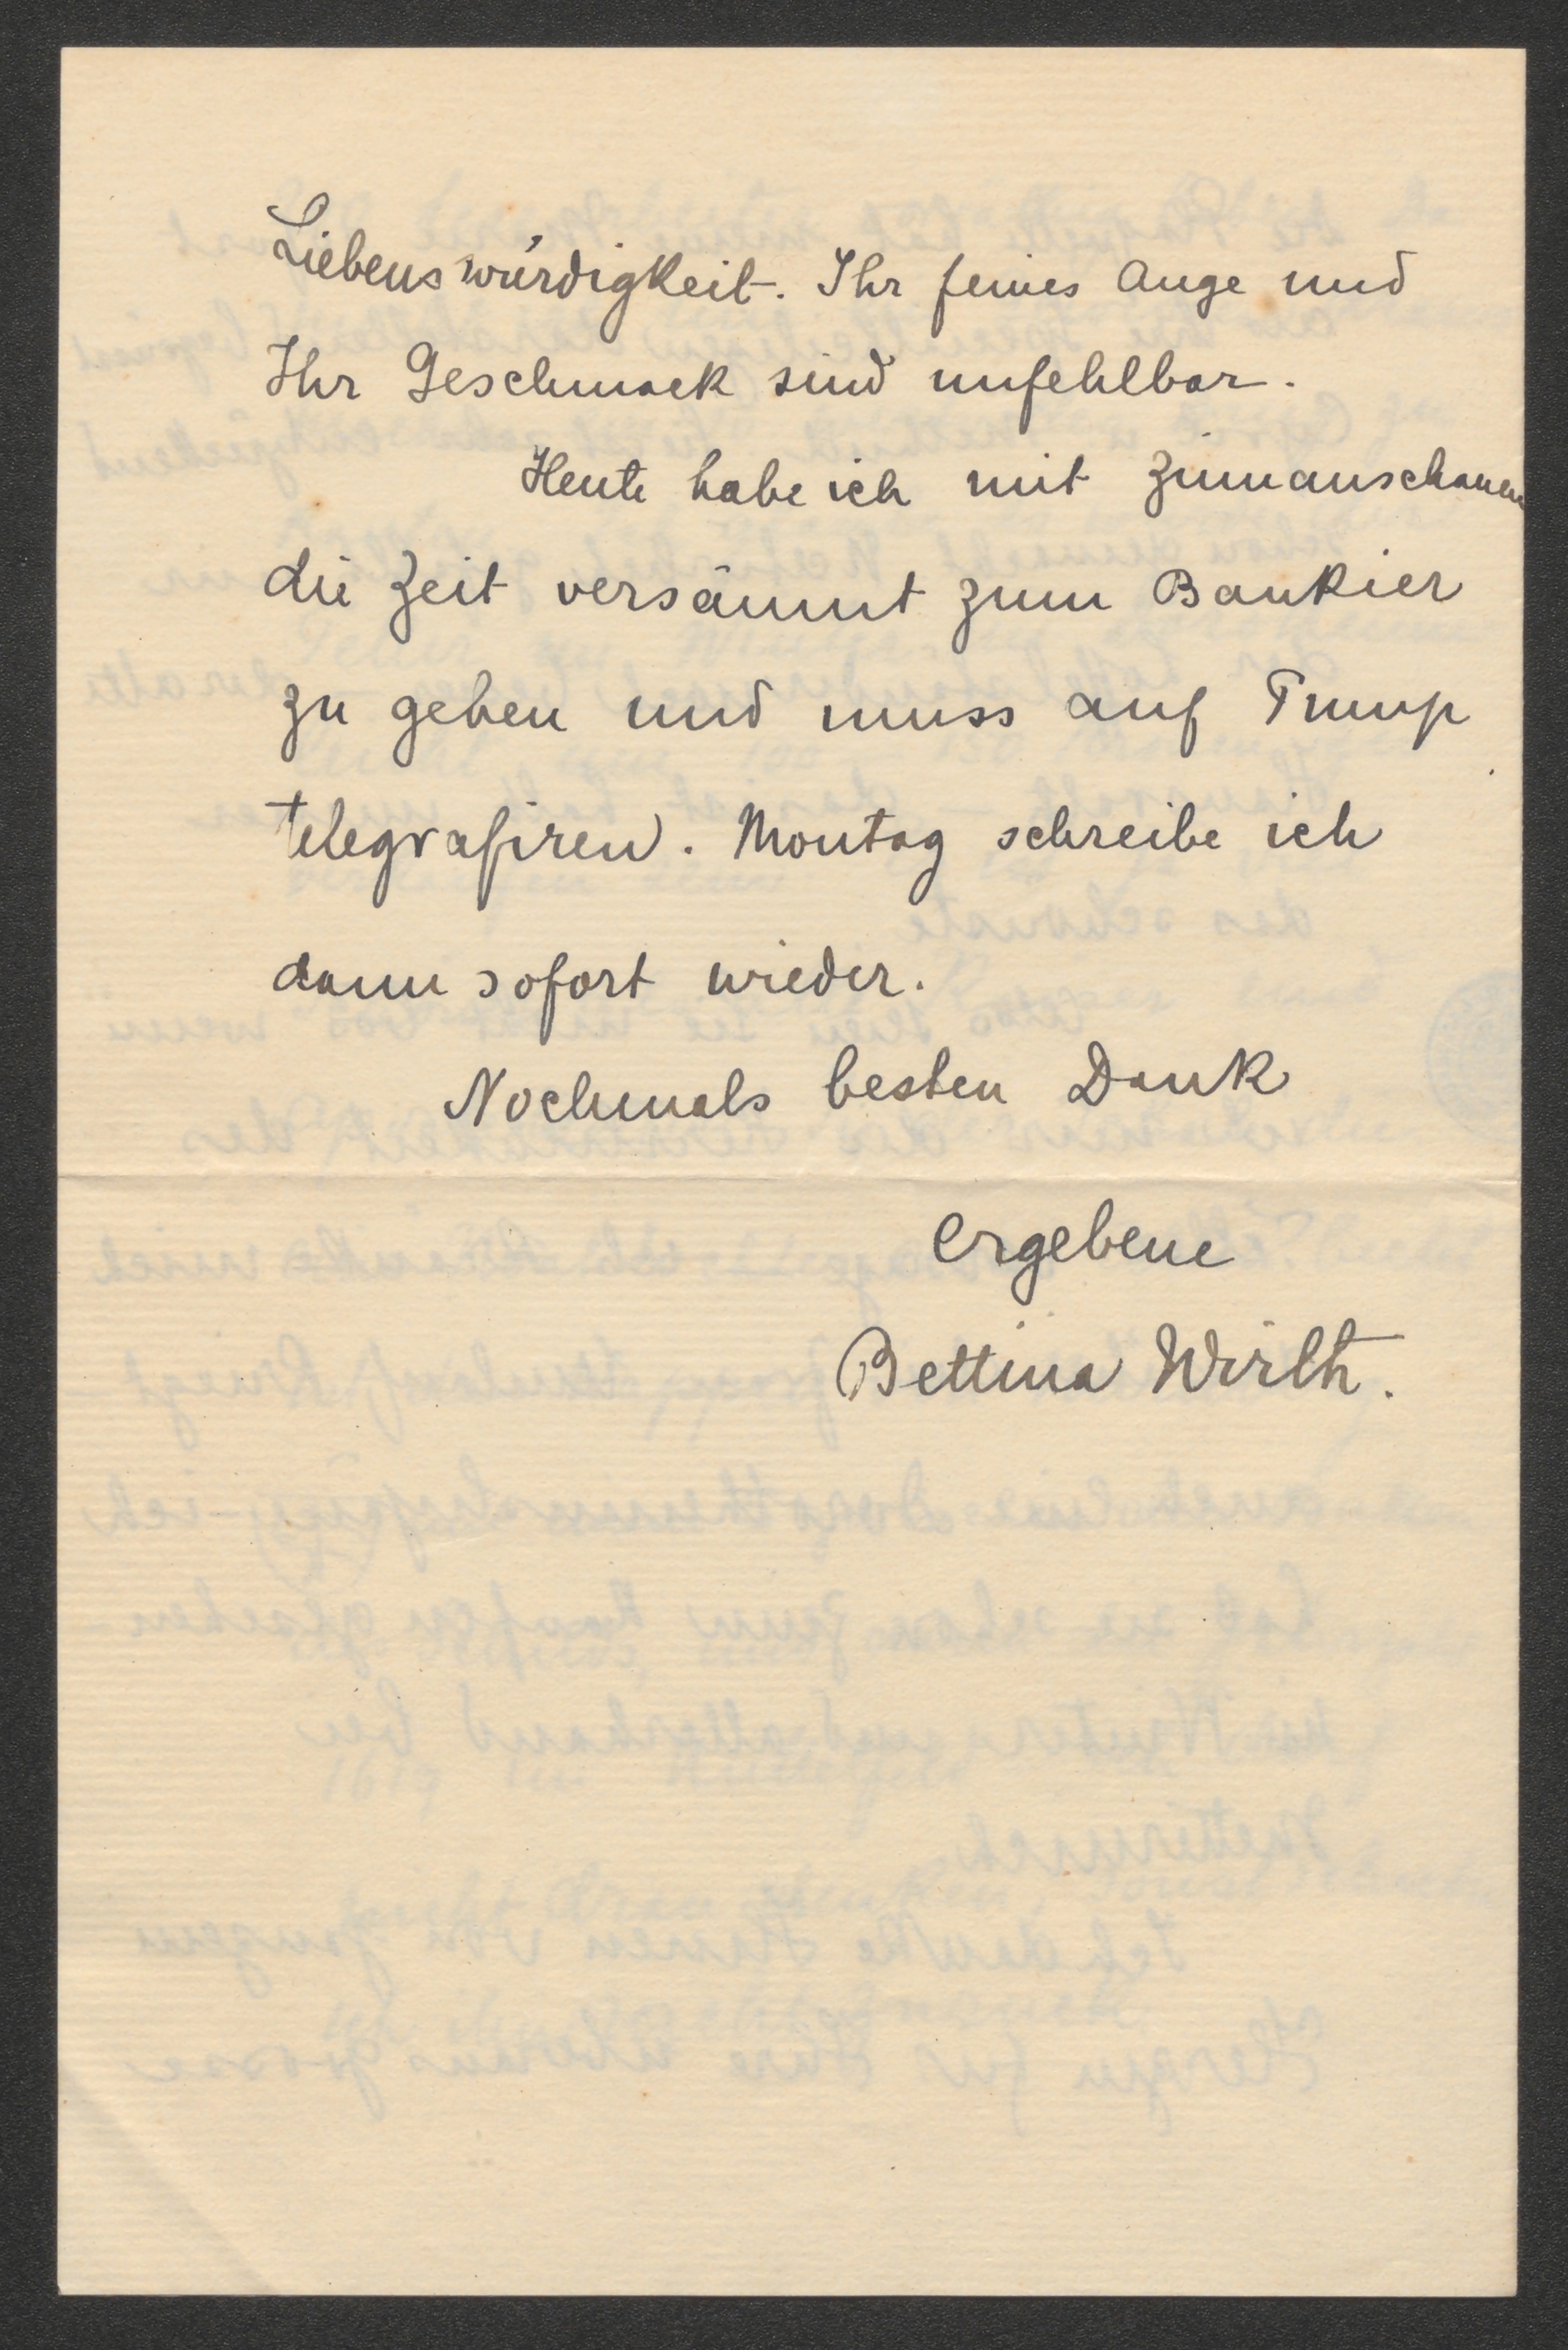 Liebenswürdigkeit. Ihr feines Auge und
Ihr Geschmack sind unfehlbar.
Heute habe ich mit Zinnanschauen
die Zeit versäumt zum Bankier
zu gehen und muss auf Pump
telegrafiren. Montag schreibe ich
dann sofort wieder.
Nochmals besten Dank
ergebene
Bettina Wirth.